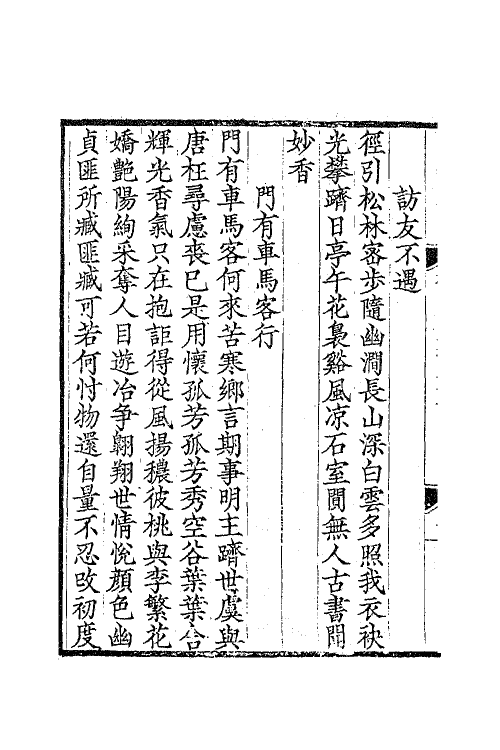 訪友不遇
徑引松林密步隨幽澗長山深白雲多照我衣袂
光攀躋日亭午花裊谿風凉石室閴無人古書聞
妙香
門有車馬客行
門有車馬客何來苦寒鄉言期事明主躋世虞與
唐枉尋慮喪已是用懷孤芳孤芳秀空谷葉葉含
輝光香氣只在抱詎得從風揚穠彼桃與李繁花
嬌艷陽絢采奪人目遊冶争翺翔世情悅顔色幽
貞匪所臧匪臧可若何忖物還自量不忍改初度